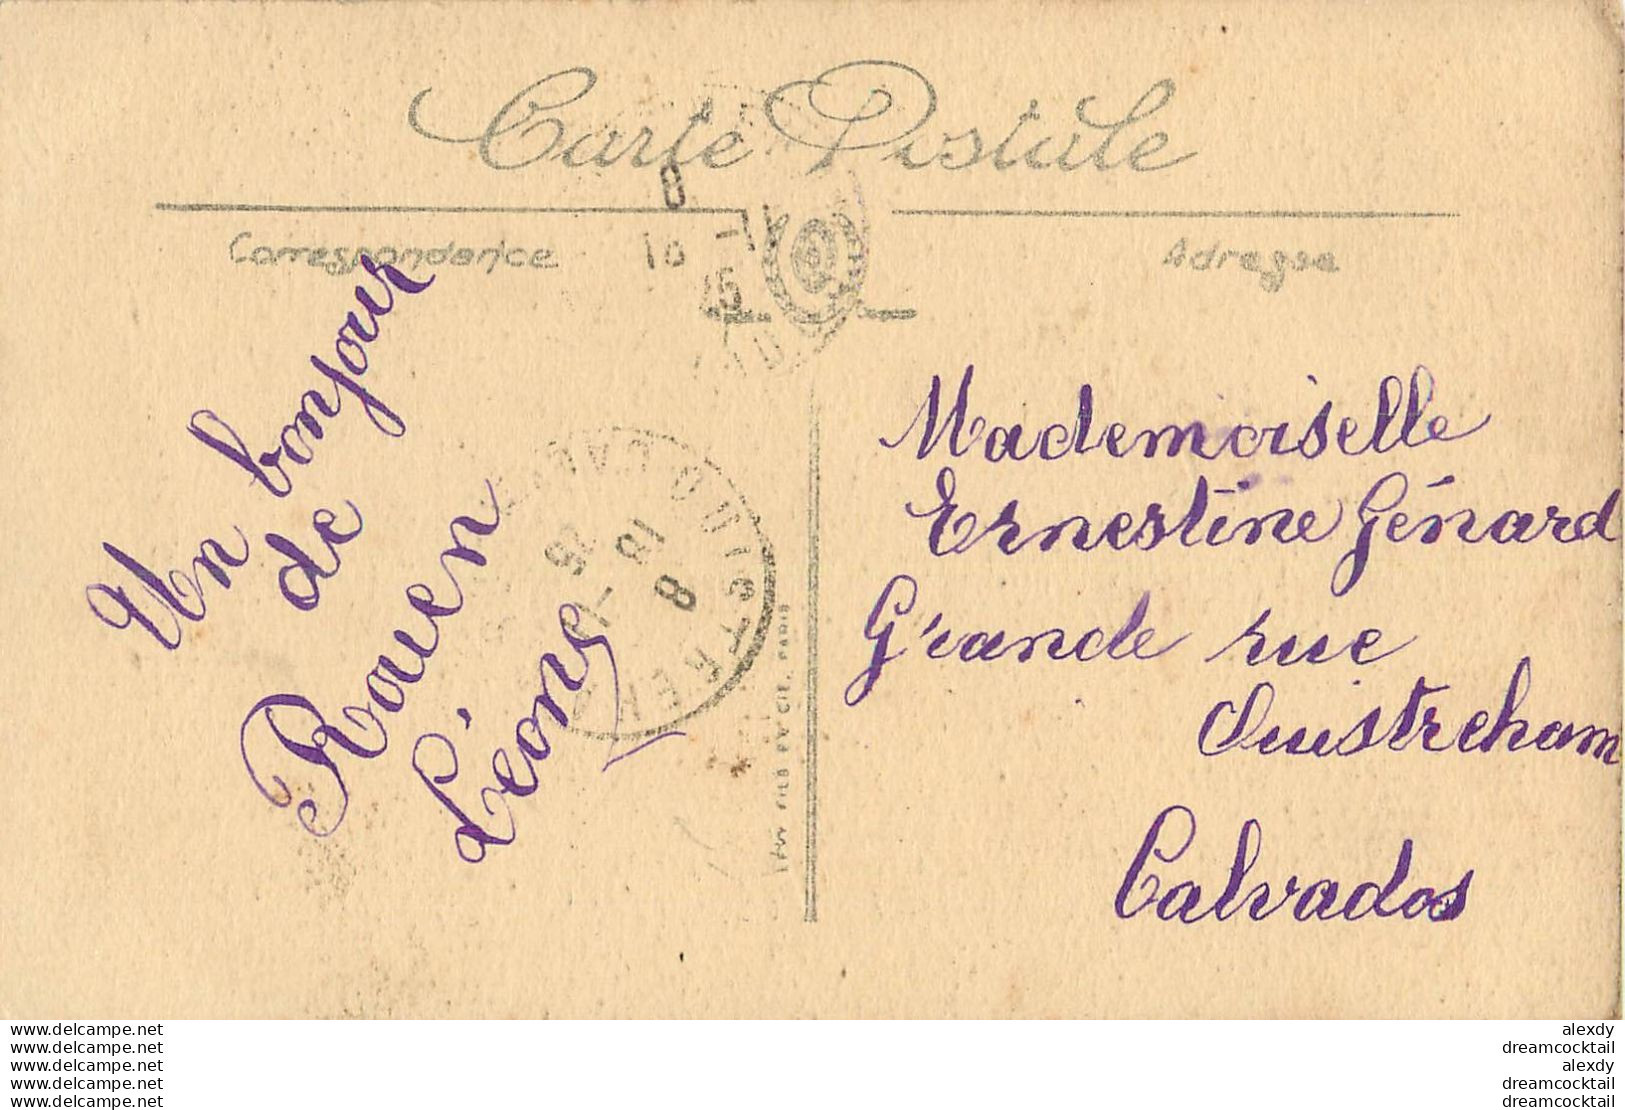 Carte Postale
Correspondance
Adresse
8
10 -
25
Un bonjour
de
Rouen
Léons
OUISTREHAM
18
8
25
FILS ET CIE. PARIS
Mademoiselle
Ernestine Génard
Grande rue
Ouistreham
Calvados
www.delcampe.net
www.delcampe.net
www.delcampe.net
www.delcampe.net
www.delcampe.net
alexdy
dreamcocktail
alexdy
dreamcocktail
dreamcocktail